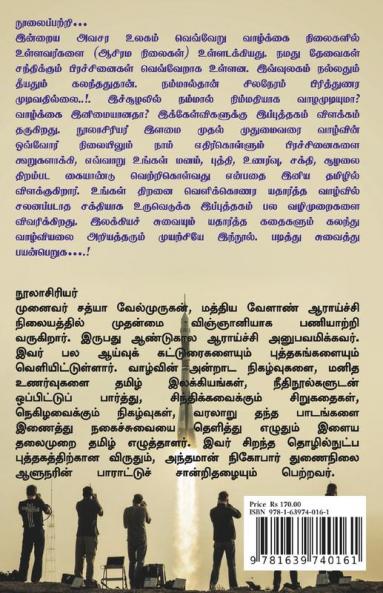 நூலைப்பற்றி...
இன்றைய அவசர உலகம் வெவ்வேறு வாழ்க்கை நிலைகளில்
உள்ளவர்களை (ஆசிரம நிலைகள்) உள்ளடக்கியது. நமது தேவைகள்
சந்திக்கும் பிரச்சினைகள் வெவ்வேறாக உள்ளன. இவ்வுலகம் நல்லதும்
தீயதும் கலந்ததுதான். நம்மால்தான் சிலநேரம் பிரித்துணர
முடிவதில்லை..!. இச்சூழலில் நம்மால் நிம்மதியாக வாழமுடியுமா?
வாழ்க்கை இனிமையானதா? இக்கேள்விகளுக்கு இப்புத்தகம் விளக்கம்
தருகிறது. நூலாசிரியர் இளமை முதல் முதுமைவரை வாழ்வின்
ஒவ்வோர் நிலையிலும் நாம் எதிர்கொள்ளும் பிரச்சினைகளை
கூறுகளாக்கி, எவ்வாறு உங்கள் மனம், புத்தி, உணர்வு, சக்தி, சூழலை
திறம்பட கையாண்டு வெற்றிகொள்வது என்பதை இனிய தமிழில்
விளக்குகிறார். உங்கள் திறனை வெளிக்கொணர யதார்த்த வாழ்வில்
சலனப்படாத சக்தியாக உருவெடுக்க இப்புத்தகம் பல வழிமுறைகளை
விவரிக்கிறது. இலக்கியச் சுவையும் யதார்த்த கதைகளும் கலந்து
வாழ்வியலை அறியத்தரும் முயற்சியே இந்நூல். படித்து சுவைத்து
பயன்பெறுக...!
நூலாசிரியர்
முனைவர் சத்யா வேல்முருகன், மத்திய வேளாண் ஆராய்ச்சி
நிலையத்தில் முதன்மை விஞ்ஞானியாக பணியாற்றி
வருகிறார். இருபது ஆண்டுகால ஆராய்ச்சி அனுபவமிக்கவர்.
இவர் பல ஆய்வுக் கட்டுரைகளையும் புத்தகங்களையும்
வெளியிட்டுள்ளார். வாழ்வின் அன்றாட நிகழ்வுகளை, மனித
உணர்வுகளை தமிழ் இலக்கியங்கள், நீதிநூல்களுடன்
ஒப்பிட்டுப் பார்த்து, சிந்திக்கவைக்கும் சிறுகதைகள்,
நெகிழவைக்கும் நிகழ்வுகள், வரலாறு தந்த பாடங்களை
இணைத்து நகைச்சுவையை தெளித்து எழுதும் இளைய
தலைமுறை தமிழ் எழுத்தாளர். இவர் சிறந்த தொழில்நுட்ப
புத்தகத்திற்கான விருதும், அந்தமான் நிகோபார் துணைநிலை
ஆளுநரின் பாராட்டுச் சான்றிதழையும் பெற்றவர்.
Price Rs 170.00
ISBN 978-1-63974-016-1
9 781639 740161